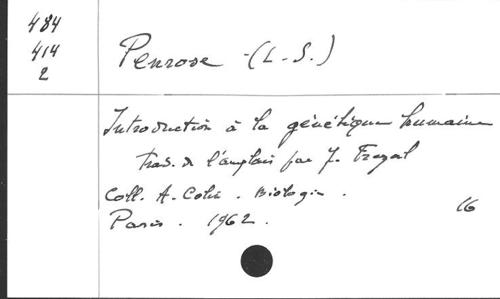 484
414
2
Penrose - (L. S.)
Introduction à la génétique humaine
trad. de l'anglais par J. Frezal
Coll. A. Colin. Biologie.
16
Paris. 1962.